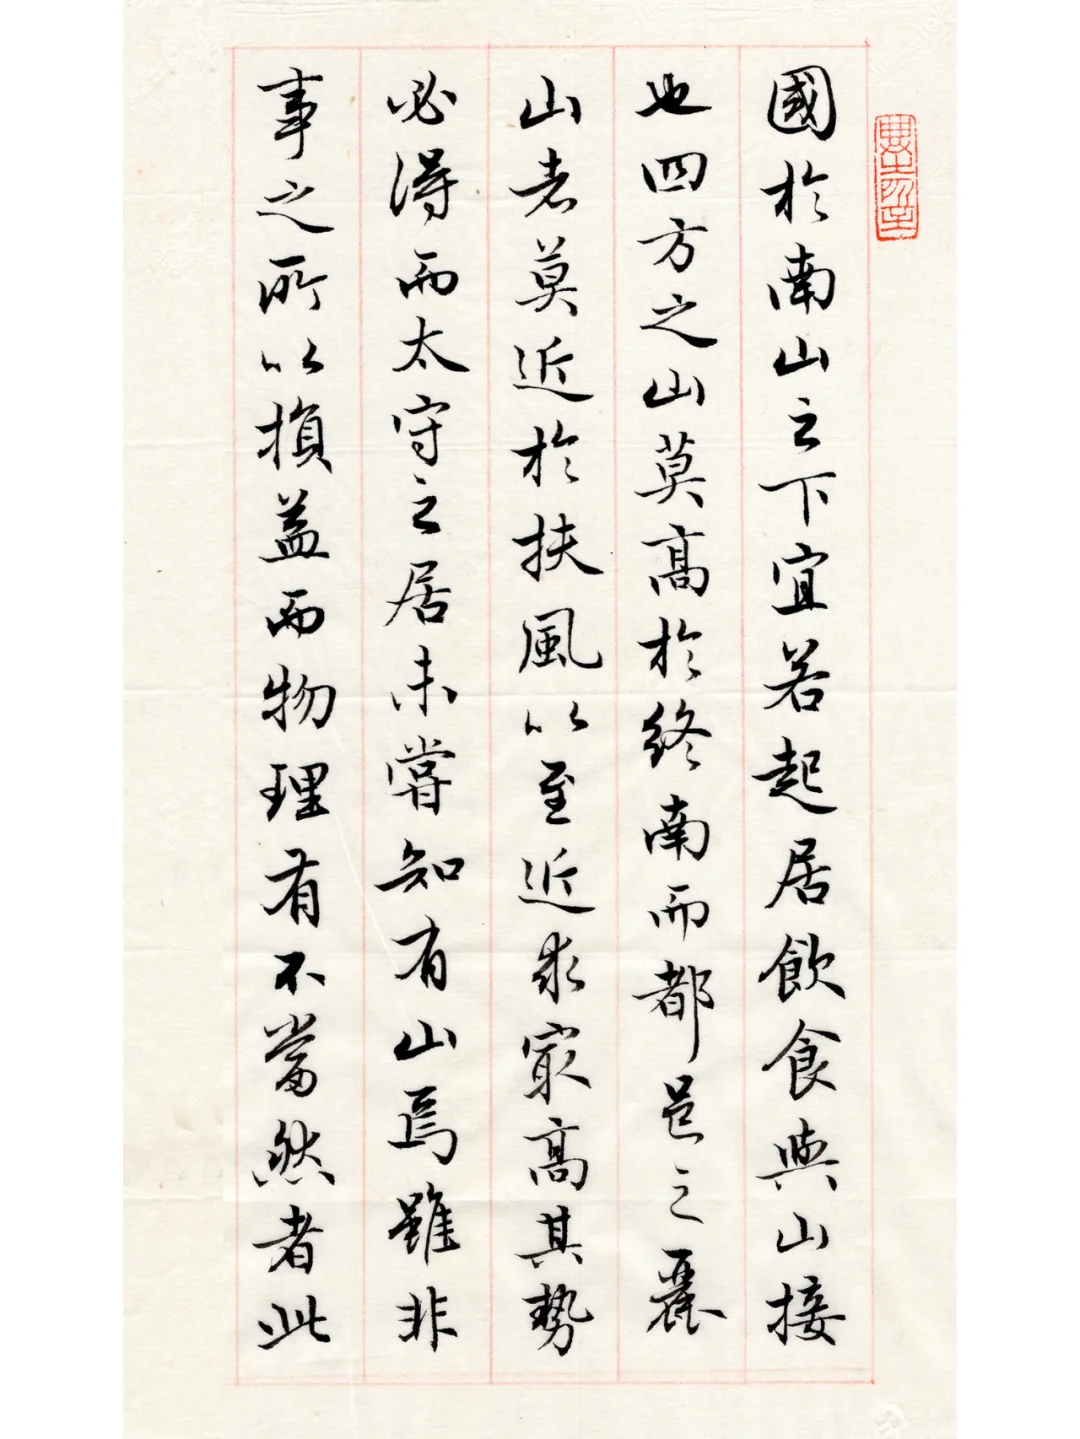 國於南山之下宜若起居飲食與山接
也四方之山莫高於終南而都邑之麗
山者莫近於扶風以至近求最高其勢
必得而太守之居未嘗知有山焉雖非
事之所以損益而物理有不當然者此